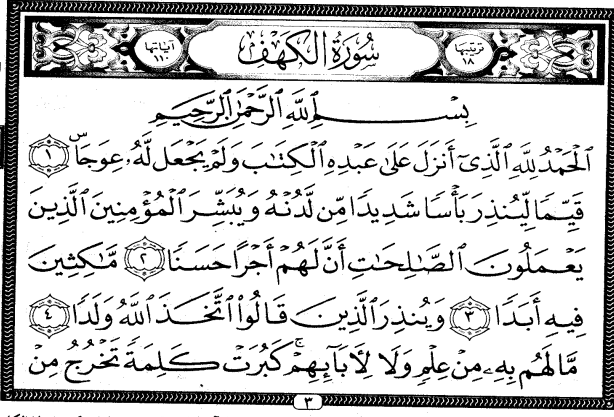 ترتيبها ١٨ سُورَةُ الكَهْفِ آياتها ١١٠
بِسْمِ اللَّهِ الرَّحْمَٰنِ الرَّحِيمِ
الْحَمْدُ لِلَّهِ الَّذِي أَنزَلَ عَلَىٰ عَبْدِهِ الْكِتَابَ وَلَمْ يَجْعَل لَّهُ عِوَجَا ۜ ١
قَيِّمًا لِّيُنذِرَ بَأْسًا شَدِيدًا مِّن لَّدُنْهُ وَيُبَشِّرَ الْمُؤْمِنِينَ الَّذِينَ
يَعْمَلُونَ الصَّالِحَاتِ أَنَّ لَهُمْ أَجْرًا حَسَنًا ٢ مَّاكِثِينَ
فِيهِ أَبَدًا ٣ وَيُنذِرَ الَّذِينَ قَالُوا اتَّخَذَ اللَّهُ وَلَدًا ٤
مَّا لَهُم بِهِ مِنْ عِلْمٍ وَلَا لِآبَائِهِمْ ۚ كَبُرَتْ كَلِمَةً تَخْرُجُ مِنْ
٣